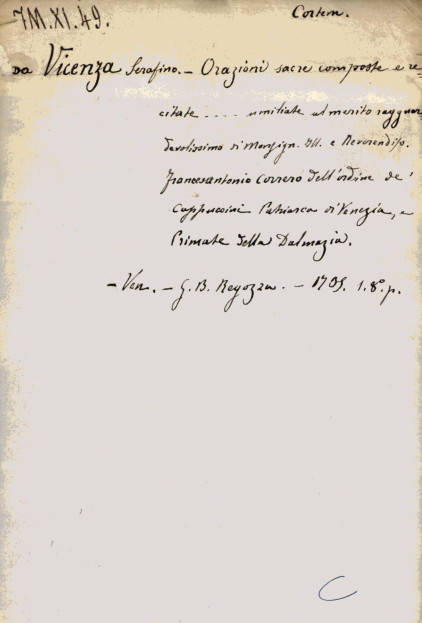 7M.XI.49.
Contem.
Da Vicenza Serafino. — Orazioni sacre composte e re
citate .... umiliate al merito ragguar
devolissimo di Monsign. Ill. e Reverendiss.
Francesantonio Correro dell'ordine de'
Cappuccini Patriarca di Venezia, e
Primate della Dalmazia.
— Ven. — G. B. Regozza. — 1735. 1. 8°. p.
C